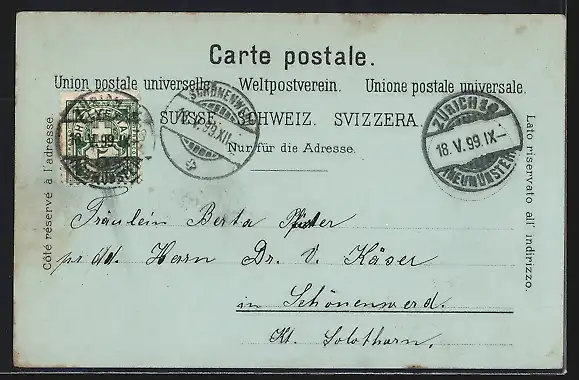 Carte postale.
Union postale universelle. Weltpostverein. Unione postale universale.
SUISSE. SCHWEIZ. SVIZZERA.
Nur für die Adresse.
Côté réservé à l'adresse.
Lato riservato all' indirizzo.
SCHÖNENWERD
V.99.XII
ZÜRICH
18.V.99.IX–
(NEUMÜNSTER)
Fräulein Berta
Herrn Dr. V. Käser
in Schönenwerd.
Kt. Solothurn.